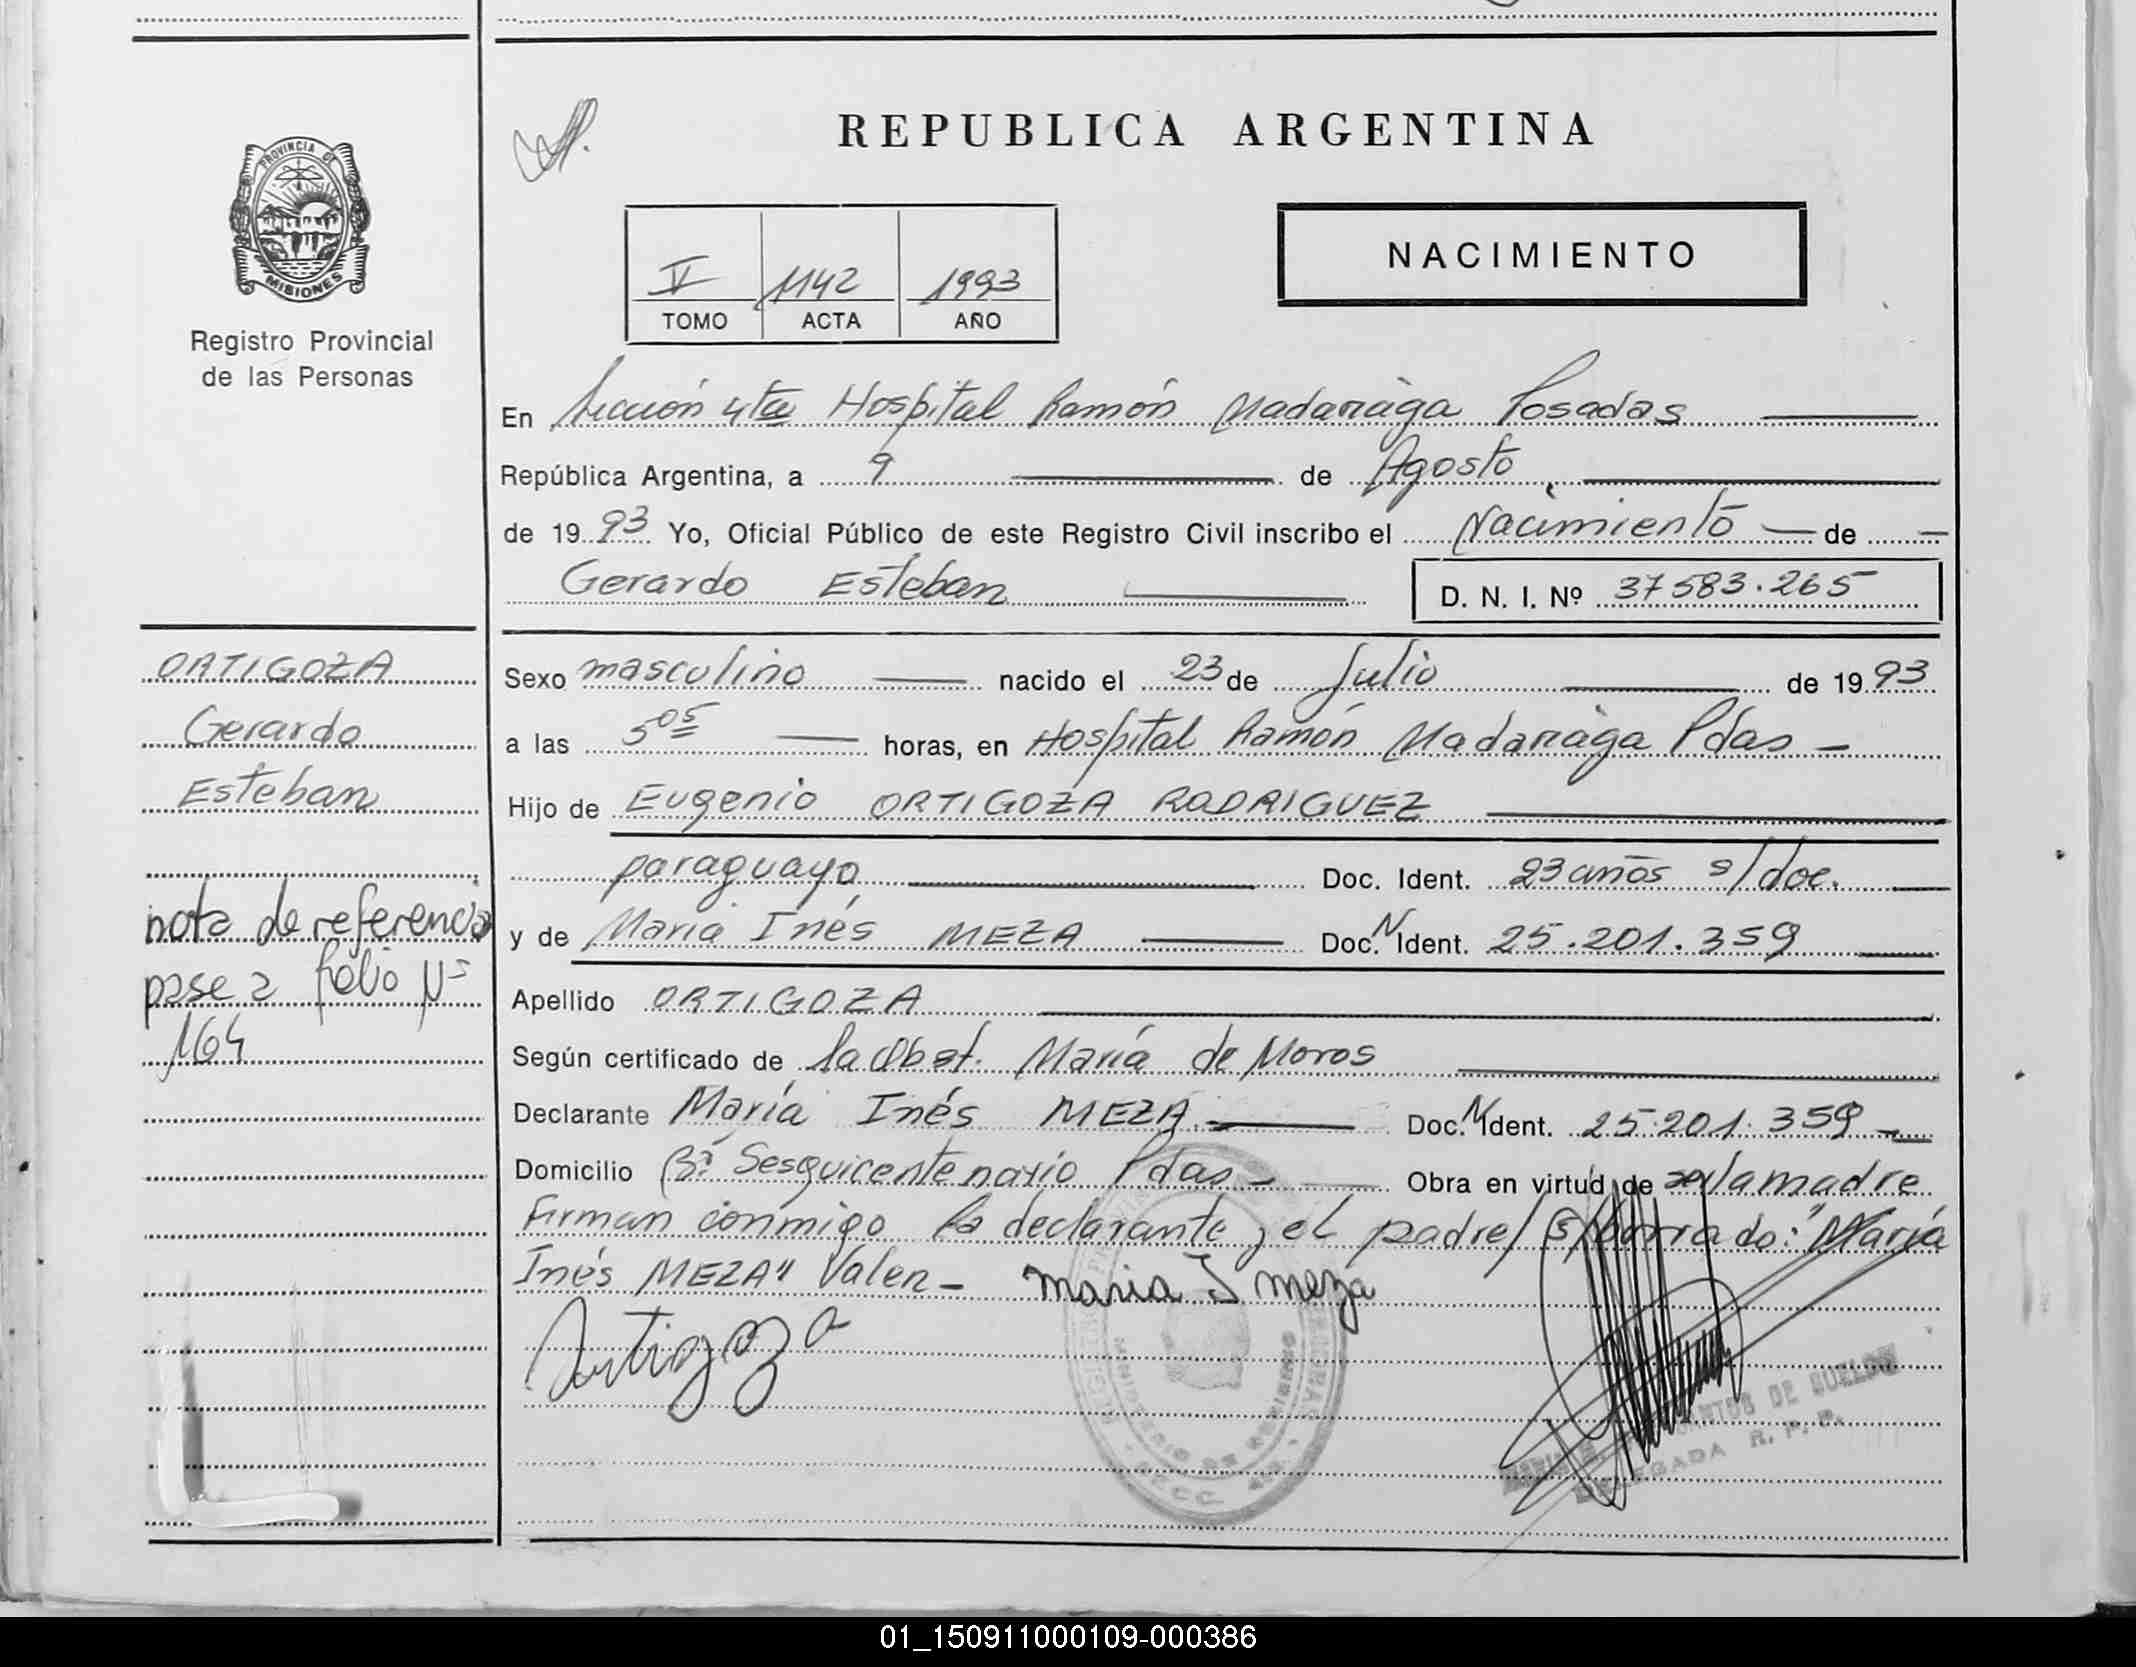 REPUBLICA ARGENTINA
PROVINCIA DE
MISIONES
Registro Provincial
de las Personas
V 1142 1993
TOMO ACTA AÑO
NACIMIENTO
En Sección 4ta Hospital Ramón Madariaga Posadas
República Argentina, a 9 de Agosto
de 1993 Yo, Oficial Público de este Registro Civil inscribo el Nacimiento de
Gerardo Esteban D. N. I. Nº 37583.265
ORTIGOZA
Gerardo
Esteban
nota de referencia
pase a folio Nº
164
Sexo masculino nacido el 23 de Julio de 1993
a las 5 05 horas, en Hospital Ramón Madariaga Pdas
Hijo de Eugenio ORTIGOZA RODRIGUEZ
paraguayo Doc. Ident. 23 años s/doc.
y de María Inés MEZA Doc. N Ident. 25.201.359
Apellido ORTIGOZA
Según certificado de la Obst. María de Moros
Declarante María Inés MEZA Doc. N Ident. 25.201.359
Domicilio Bº Sesquicentenario Pdas Obra en virtud de ser la madre
Firman conmigo la declarante y el padre/ S/borrado: "María
Inés MEZA" Valen - maria I meza
Ortigoza
DE SUELDO
DELEGADA R. P. P.
01_150911000109-000386